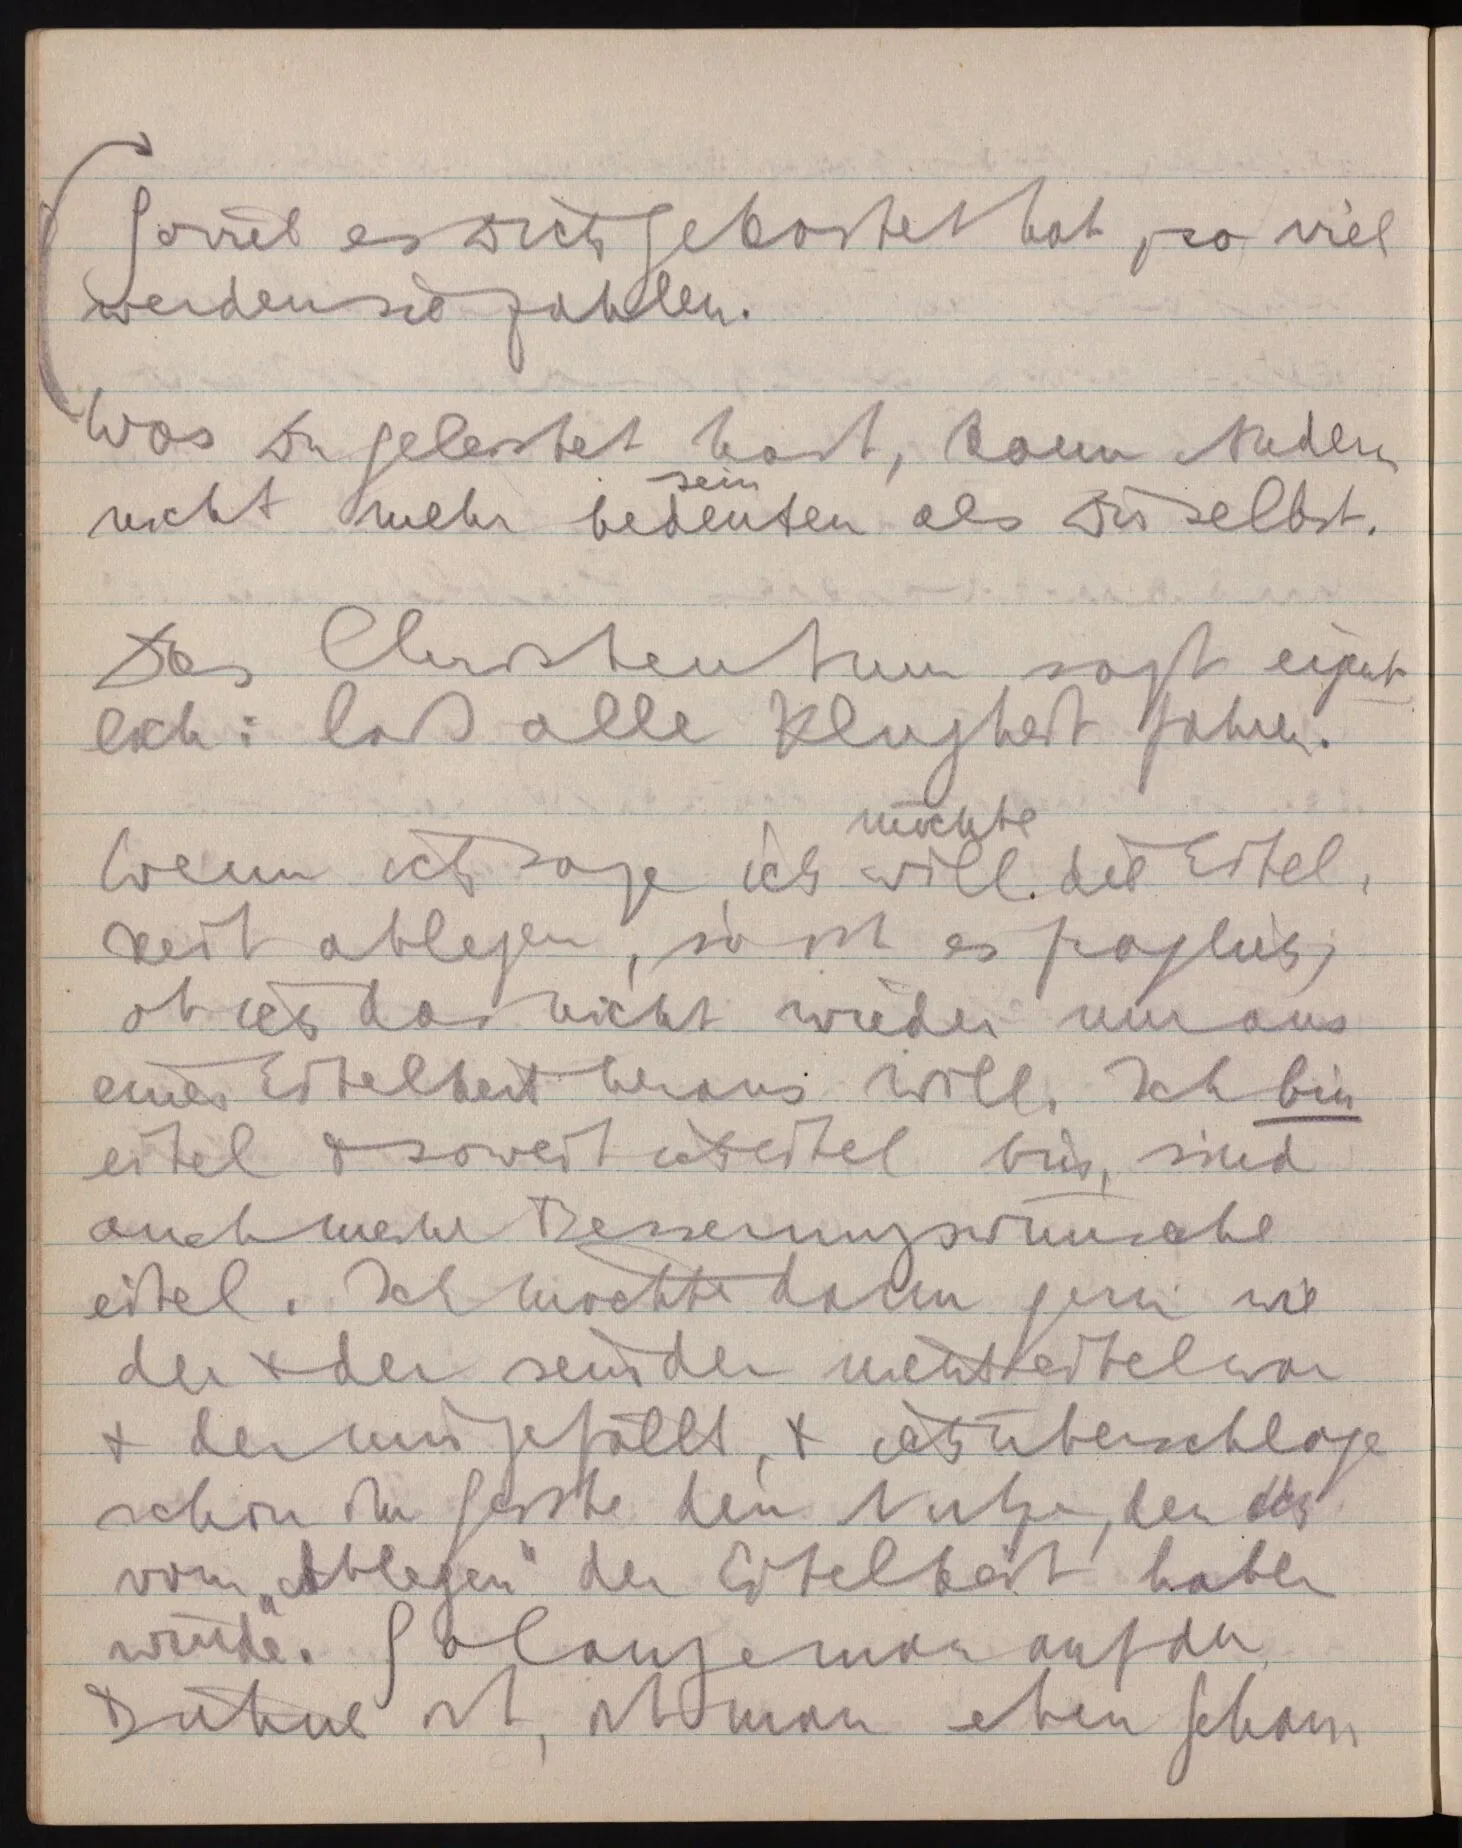 Soviel es Dich gekostet hat, so viel
werden sie zahlen.
Was Du geleistet hast, kann Andern
sein
nicht mehr bedeuten als Dir selbst.
Das Christentum sagt eigent-
lich: laß alle Klugheit fahren.
möchte
Wenn ich sage, ich will die Eitel-
keit ablegen, so ist es fraglich,
ob ich das nicht wieder nur aus
einer Eitelkeit heraus will. Ich bin
eitel & soweit ich eitel bin, sind
auch meine Besserungswünsche
eitel. Ich möchte dann gern wie
der & der sein der nicht eitel war
& der mir gefällt, & ich überschlage
schon im Geiste den Nutzen, den ich
vom „Ablegen" der Eitelkeit haben
würde. So lange man auf der
Bühne ist, ist man eben Schau-